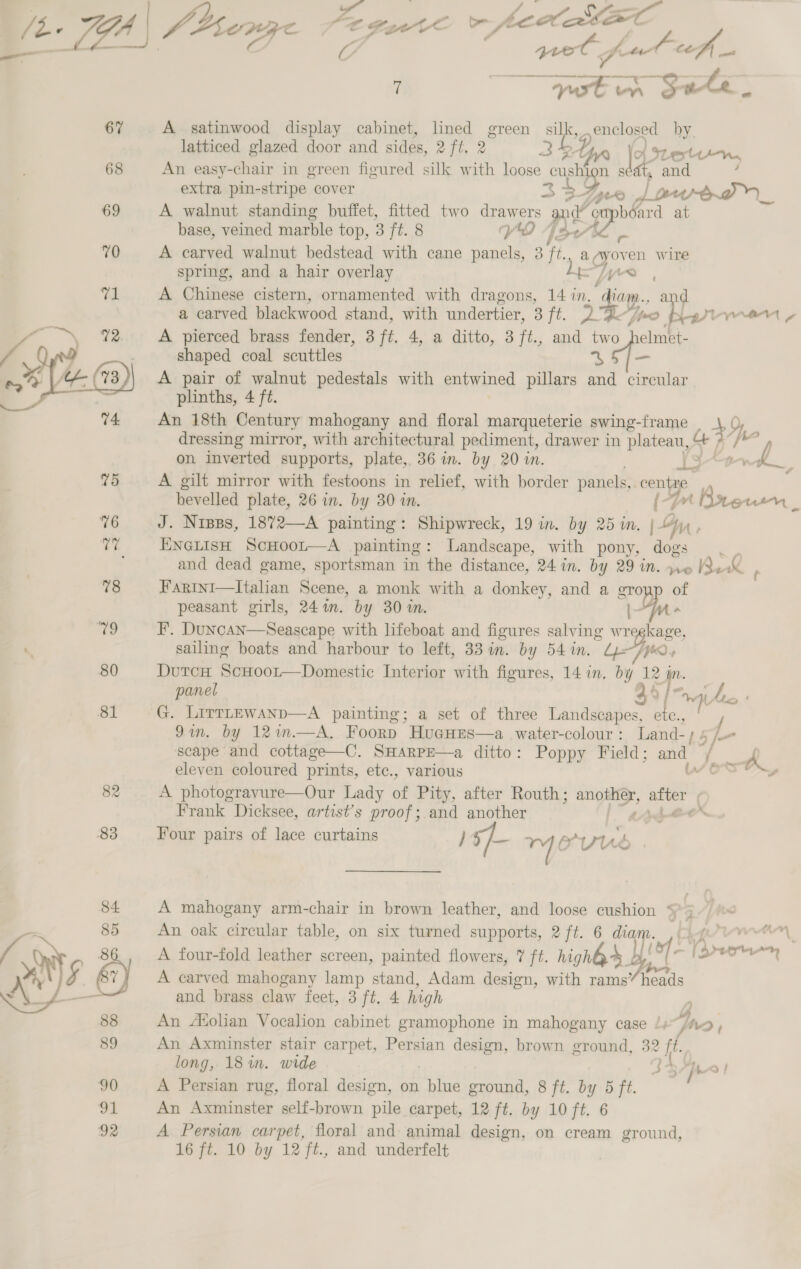 12. 79A Bronze Figure &
not put up
7
just in Sale.
67 A satinwood display cabinet, lined green silk, enclosed by
latticed glazed door and sides, 2 ft. 2
68 An easy-chair in green figured silk with loose cushion seat, and
extra pin-stripe cover
69 A walnut standing buffet, fitted two drawers and cupboard at
base, veined marble top, 3 ft. 8
70 A carved walnut bedstead with cane panels, 3 ft., a woven wire
spring, and a hair overlay
71 A Chinese cistern, ornamented with dragons, 14 in. diam., and
a carved blackwood stand, with undertier, 3 ft.
72 A pierced brass fender, 3 ft. 4, a ditto, 3 ft., and two helmet-
shaped coal scuttles 35/-
73 A pair of walnut pedestals with entwined pillars and circular
plinths, 4 ft.
74 An 18th Century mahogany and floral marqueterie swing-frame
dressing mirror, with architectural pediment, drawer in plateau,
on inverted supports, plate, 36 in. by 20 in.
75 A gilt mirror with festoons in relief, with border panels, centre
bevelled plate, 26 in. by 30 in. Brown
76 J. NIBBS, 1872—A painting: Shipwreck, 19 in. by 25 in.
77 ENGLISH SCHOOL—A painting: Landscape, with pony, dogs
and dead game, sportsman in the distance, 24 in. by 29 in.
78 FARINI—Italian Scene, a monk with a donkey, and a group of
peasant girls, 24 in. by 30 in.
79 F. DUNCAN—Seascape with lifeboat and figures salving wregkage,
sailing boats and harbour to left, 33 in. by 54 in.
80 DUTCH SCHOOL—Domestic Interior with figures, 14 in. by 12 in.
panel
81 G. LITTLEWAND—A painting; a set of three Landscapes, etc.,
9 in. by 12 in.—A. FOORD HUGHES—a water-colour: Land-
scape and cottage—C. SHARPE—a ditto: Poppy Field; and
eleven coloured prints, etc., various
82 A photogravure—Our Lady of Pity, after Routh; another, after
Frank Dicksee, artist's proof; and another
83 Four pairs of lace curtains 15/-
84 A mahogany arm-chair in brown leather, and loose cushion
85 An oak circular table, on six turned supports, 2 ft. 6 diam.
86 A four-fold leather screen, painted flowers, 7 ft. high
87 A carved mahogany lamp stand, Adam design, with rams' heads
and brass claw feet, 3 ft. 4 high
88 An Æolian Vocalion cabinet gramophone in mahogany case
89 An Axminster stair carpet, Persian design, brown ground, 32 ft.
long, 18 in. wide
90 A Persian rug, floral design, on blue ground, 8 ft. by 5 ft.
91 An Axminster self-brown pile carpet, 12 ft. by 10 ft. 6
92 A Persian carpet, floral and animal design, on cream ground,
16 ft. 10 by 12 ft., and underfelt